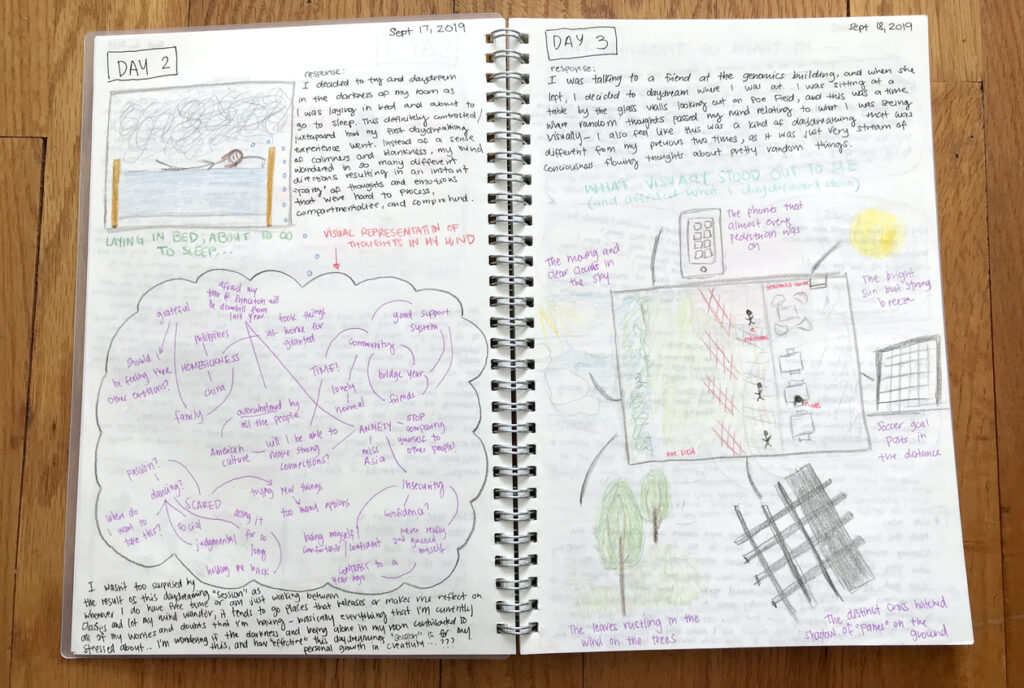 Sept 17, 2019
DAY 2
response:
I decided to try and daydream
in the darkness of my room as
I was laying in bed and about to
go to sleep. This definitely contrasted/
juxtaposed how my first daydreaming
experience went. Instead of a sense
of calmness and blankness, my mind
wandered in so many different
directions resulting in an instant
"spark" of thoughts and emotions
that were hard to process,
compartmentalize, and comprehend.
LAYING IN BED, ABOUT TO GO
TO SLEEP...
VISUAL REPRESENTATION OF
THOUGHTS IN MY MIND
grateful
afraid my
time @ Princeton will
be downhill from
last year
took things
at home for
granted
good support
system
philippines
community
should I
be feeling these
other emotions?
HOMESICKNESS
TIME!
bridge year
china
lonely
family
normal
friends
overwhelmed by
all the people
ANXIETY
STOP
comparing
yourself to
other people!
American
culture
will I be able to
make strong
connections?
I
miss
Asia
passion?
dancing?
SCARED
trying new things
too many options
insecurity
confidence?
where do
I want to
take this?
social
doing it
for so
long
judgmental
holding me back
being myself
comfortable/confident
never really
2nd guessed
myself
CONTRAST to a
year ago
I wasn't too surprised by
the result of this daydreaming "session" as
whenever I do have free time or am just walking between
classes and let my mind wander, it tends to go places that releases or makes me reflect on
all of my worries and doubts that I'm having - basically everything that I'm currently
stressed about... I'm wondering if the darkness and being alone in my room contributed to
this, and how "effective" this daydreaming "session" is for my
personal growth in creativity...???
Sept 18, 2019
DAY 3
response:
I was talking to a friend at the genomics building, and when she
left, I decided to daydream where I was at. I was sitting at a
table by the glass walls looking out on Poe Field, and this was a time
where random thoughts passed my mind relating to what I was seeing
visually - I also feel like this was a kind of daydreaming that was
different from my previous two times, as it was just very stream of
conciousness flowing thoughts about pretty random things.
WHAT VISUALLY STOOD OUT TO ME
(and affected what I daydreamed about)
The phones that
almost every
pedestrian was
on
The moving and
clear clouds in
the sky
The bright
sun but strong
breeze
me
Poe Field
Soccer goal
posts in
the distance
The leaves rustling in the
wind on the trees
The distinct cross hatched
shadow of "panes" on the
ground